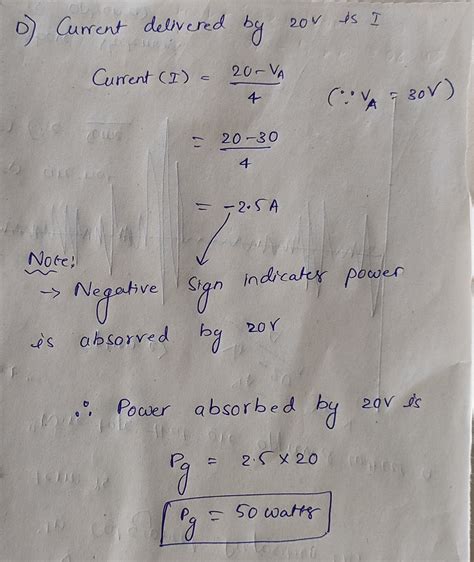 D) Current delivered by 20V is I
Current (I) = 20-VA / 4 (∵ VA = 30V)
= 20-30 / 4
= -2.5A
Note:
→ Negative sign indicates power
is absorved by 20V
∴ Power absorbed by 20V is
Pg = 2.5 × 20
Pg = 50 watts